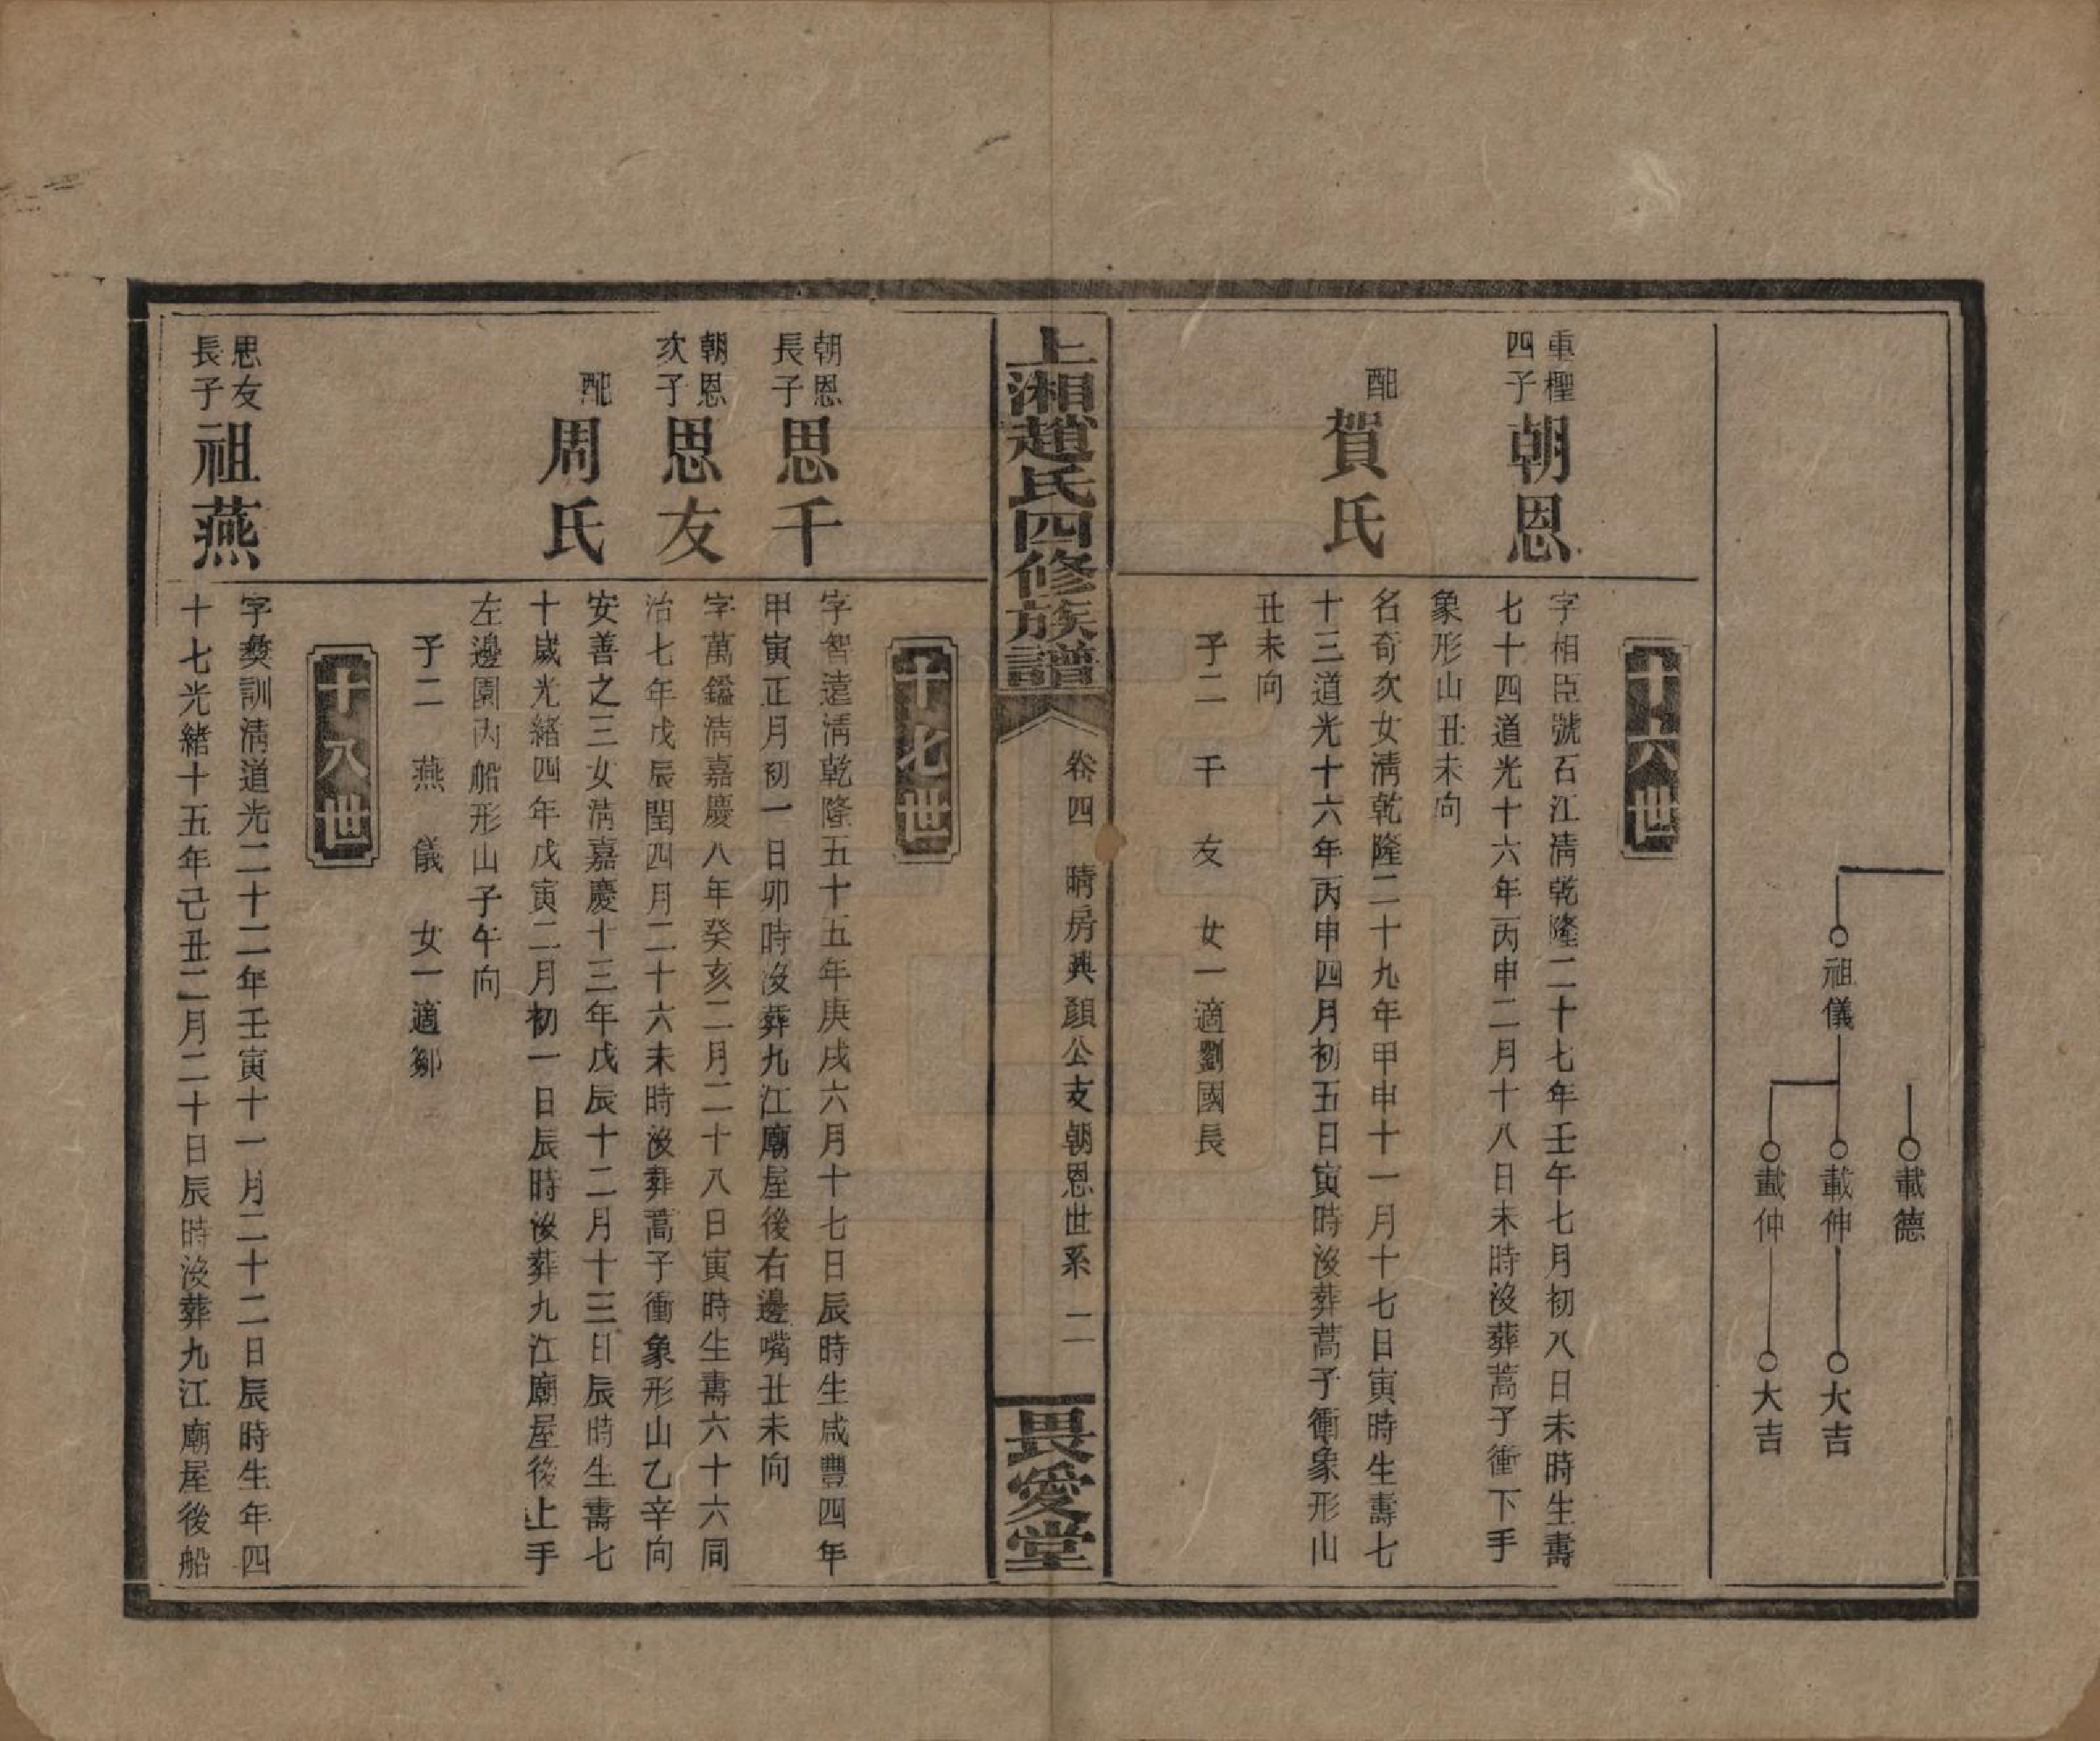 載德
祖儀
載伸
大吉
載仲
大吉
十六世
重樫
四子
朝恩
字相臣號石江清乾隆二十七年壬午七月初八日未時生壽
七十四道光十六年丙申二月十八日未時沒葬蒿子衝下手
象形山丑未向
配
賀氏
名奇次女清乾隆二十九年甲申十一月十七日寅時生壽七
十三道光十六年丙申四月初五日寅時沒葬蒿子衝象形山
丑未向
子二 千 友 女一適劉國長
上湘趙氏四修族譜
卷四 晴房興顔公支朝恩世系 二
畏愛堂
十七世
朝恩
長子
思千
字智遠清乾隆五十五年庚戌六月十七日辰時生咸豐四年
甲寅正月初一日卯時沒葬九江廟屋後右邊嘴丑未向
朝恩
次子
思友
字萬鑑清嘉慶八年癸亥二月二十八日寅時生壽六十六同
治七年戊辰閏四月二十六未時沒葬蒿子衝象形山乙辛向
配
周氏
安善之三女清嘉慶十三年戊辰十二月十三日辰時生壽七
十歲光緒四年戊寅二月初一日辰時後葬九江廟屋後上手
左邊園內船形山子午向
子二 燕 儀 女一適鄒
十八世
思友
長子
祖燕
字燊訓清道光二十二年壬寅十一月二十二日辰時生年四
十七光緒十五年己丑二月二十日辰時沒葬九江廟屋後船